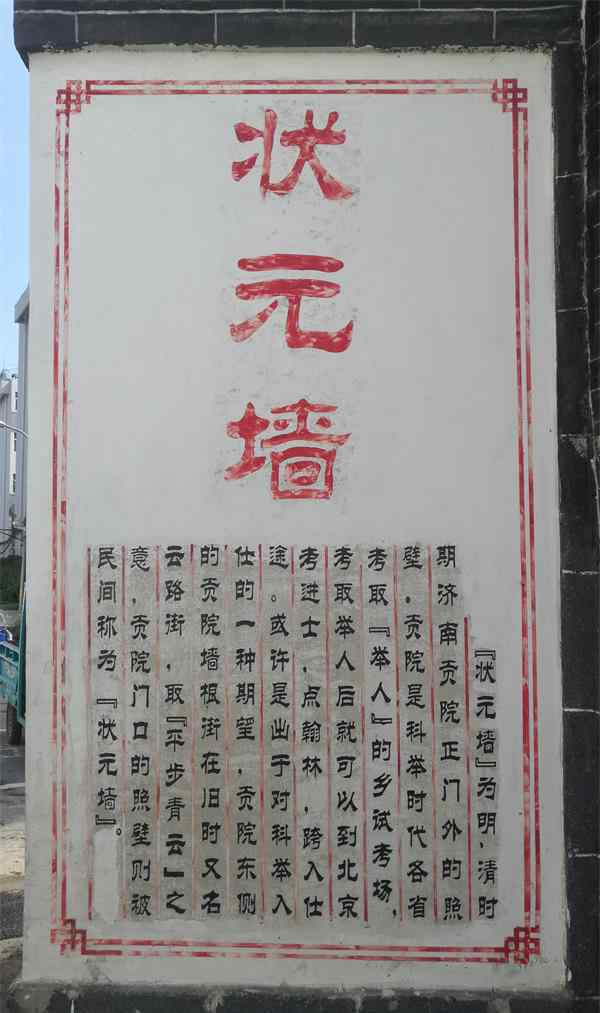 状元墙
『状元墙』为明、清时
期济南贡院正门外的照
壁。贡院是科举时代各省
考取『举人』的乡试考场，
考取举人后就可以到北京
考进士，点翰林，跨入仕
途。或许是出于对科举入
仕的一种期望，贡院东侧
的贡院墙根街在旧时又名
云路街，取『平步青云』之
意，贡院门口的照壁则被
民间称为『状元墙』。